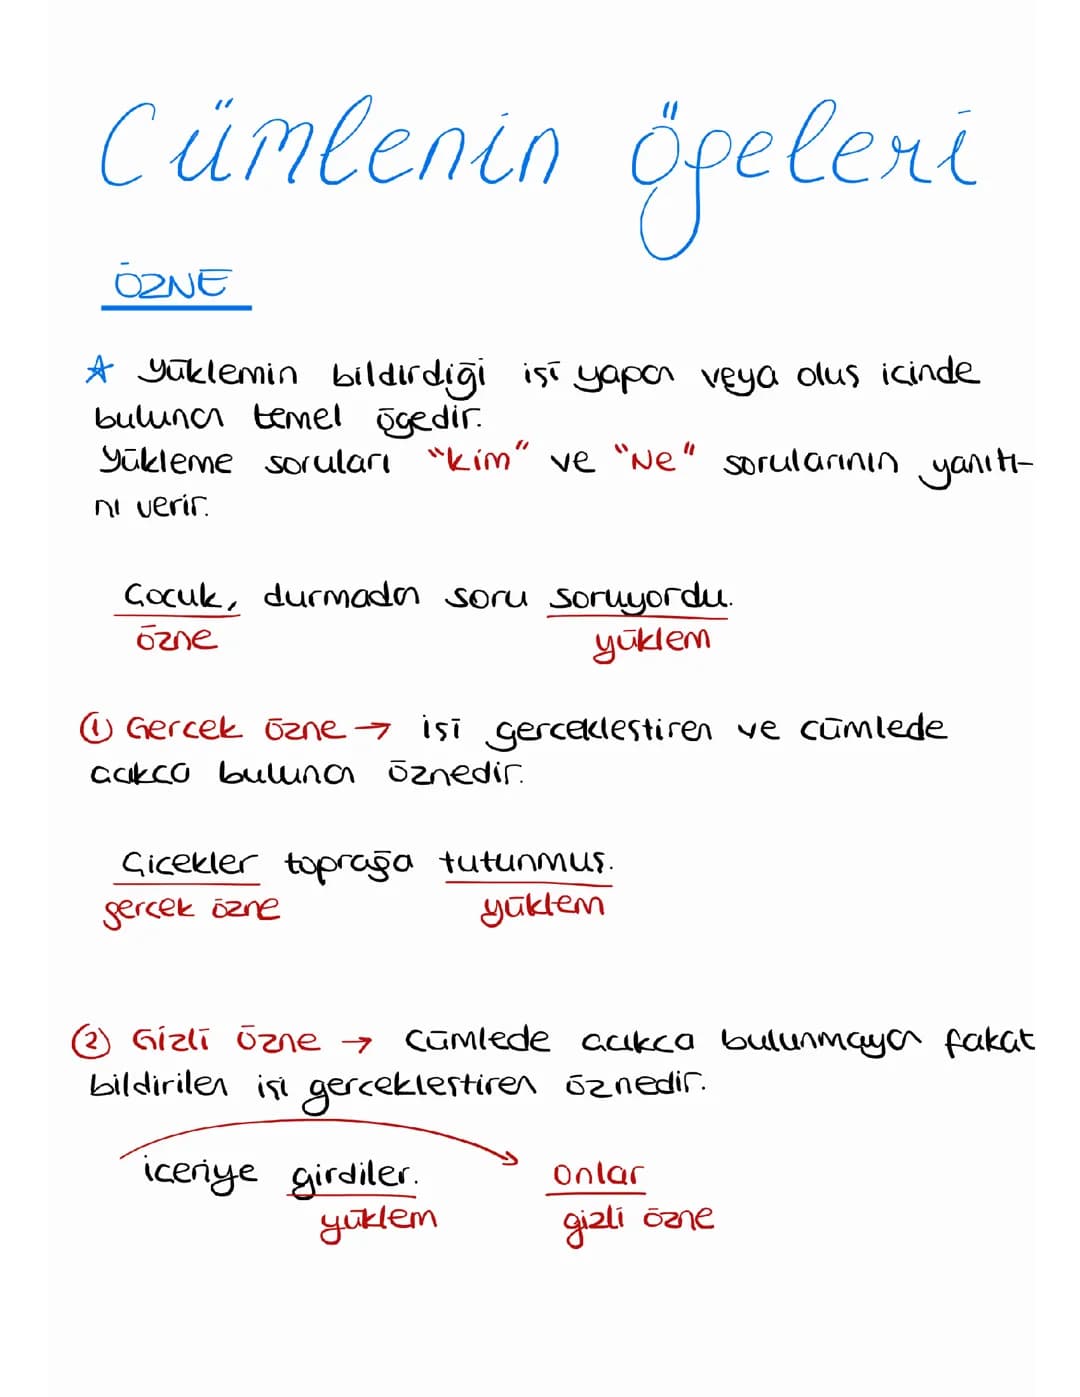 Cümlenin öğeleri
ÖZNE
☆ Yüklemin bildirdiği işi yapan veya oluş içinde
bulunan temel ögedir.
Yükleme soruları "kim" ve "Ne" sorularının yanıtı-
nı verir.
Çocuk, durmadan soru soruyordu.
özne yüklem
① Gerçek özne → işi gerçekleştiren ve cümlede
açıkça bulunan öznedir.
Çiçekler toprağa tutunmuş.
gerçek özne yüklem
② Gizli özne → Cümlede açıkça bulunmayan fakat
bildirilen işi gerçekleştiren öznedir.
içeriye girdiler. onlar
yüklem gizli özne